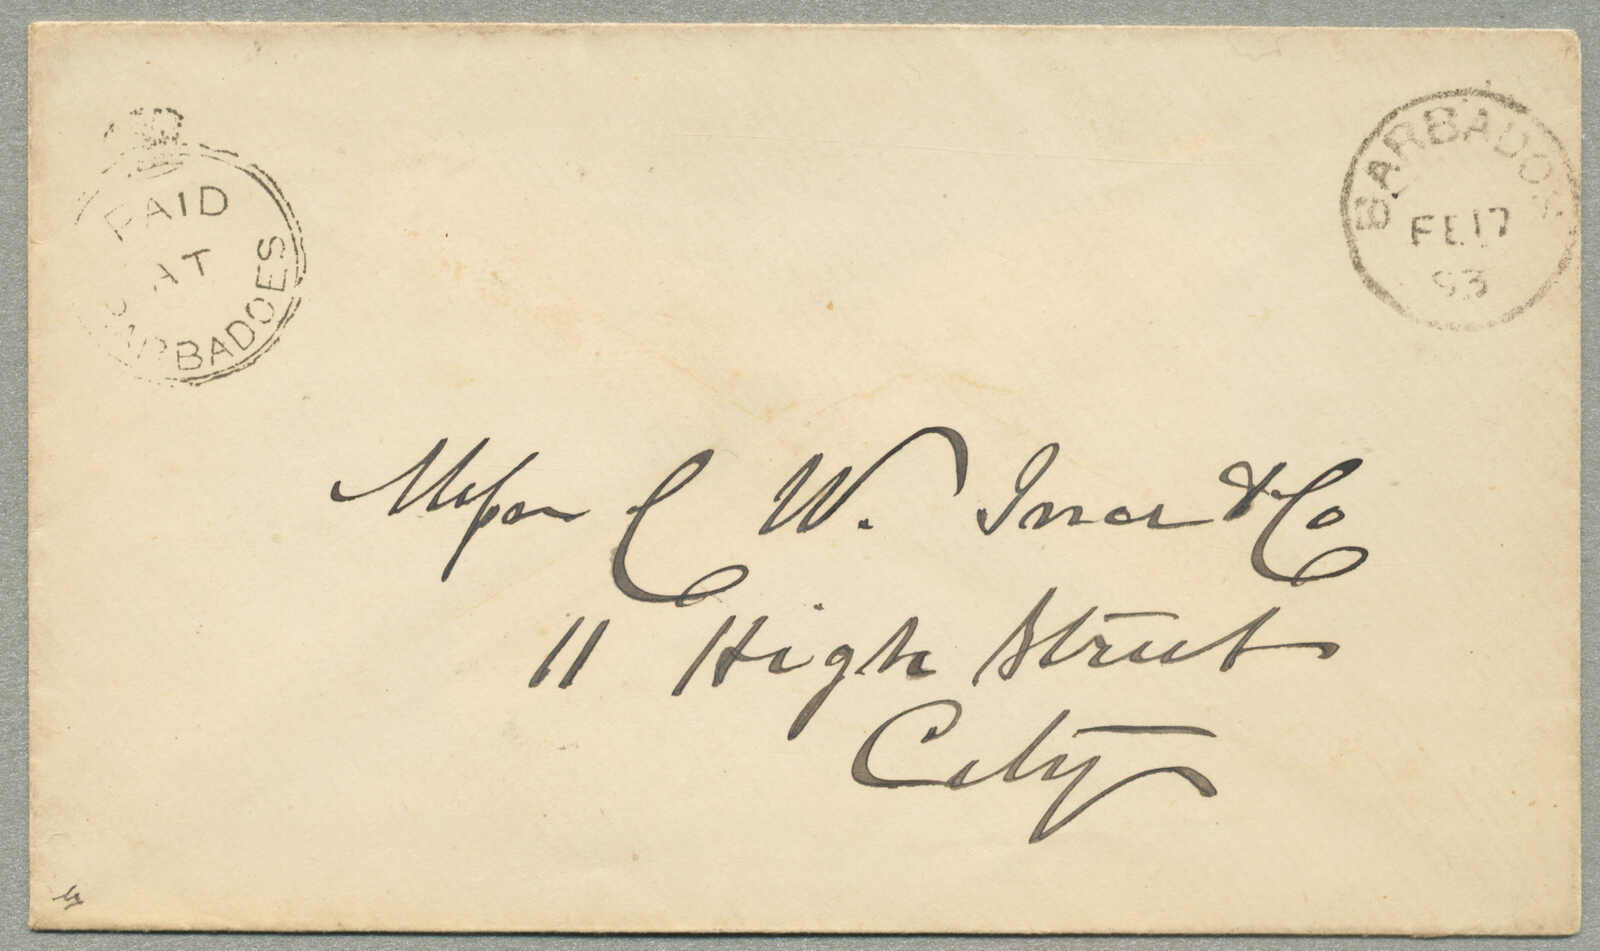 PAID
AT
BARBADOES
BARBADOS
FE 17
93
Messrs C W. Ince & Co
11 High Street
City